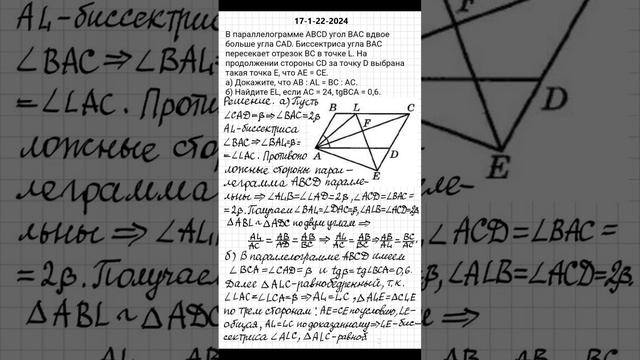 17-1-22-2024
В параллелограмме ABCD угол BAC вдвое
больше угла CAD. Биссектриса угла BAC
пересекает отрезок BC в точке L. На
продолжении стороны CD за точку D выбрана
такая точка E, что AE = CE.
а) Докажите, что AB : AL = BC : AC.
б) Найдите EL, если AC = 24, tgBCA = 0,6.
Решение. а) Пусть
∠CAD=β⇒∠BAC=2β
AL-биссектриса
∠BAC ⇒ ∠BAL=β=
=∠LAC. Противопо
ложные стороны парал-
леграмма ABCD паралле-
льны ⇒ ∠ALB=∠LAD=2β, ∠ACD=∠BAC=
=2β. Получаем ∠BAL=∠DAC=β, ∠ALB=∠ACD=2β
ΔABL ~ ΔADC по двум углам ⇒
AL/AC = AB/AD = AB/BC ⇒ AL/AC = AB/BC ⇒ AB/AL = BC/AC.
б) В параллелограмме ABCD имеем
∠BCA=∠CAD=β и tgβ=tg∠BCA=0,6.
Далее ΔALC-равнобедренный, т.к.
∠LAC=∠LCA=β ⇒ AL=LC, ΔALE=ΔCLE
по трем сторонам: AE=CE по условию, LE-
общая, AL=LC по доказанному⇒LE-бис-
сектриса ∠ALC, ΔALC-равноб
B L C
F
A D
E
AL-биссектри
∠BAC ⇒ ∠BAL
=∠LAC. Проти
ложные сто
леграмма
льны ⇒ ∠AL
=2β. Получаем
ΔABL ~ ΔADC
F
D
E
ле-
∠ACD=∠BAC=
β, ∠ALB=∠ACD=2β
⇒